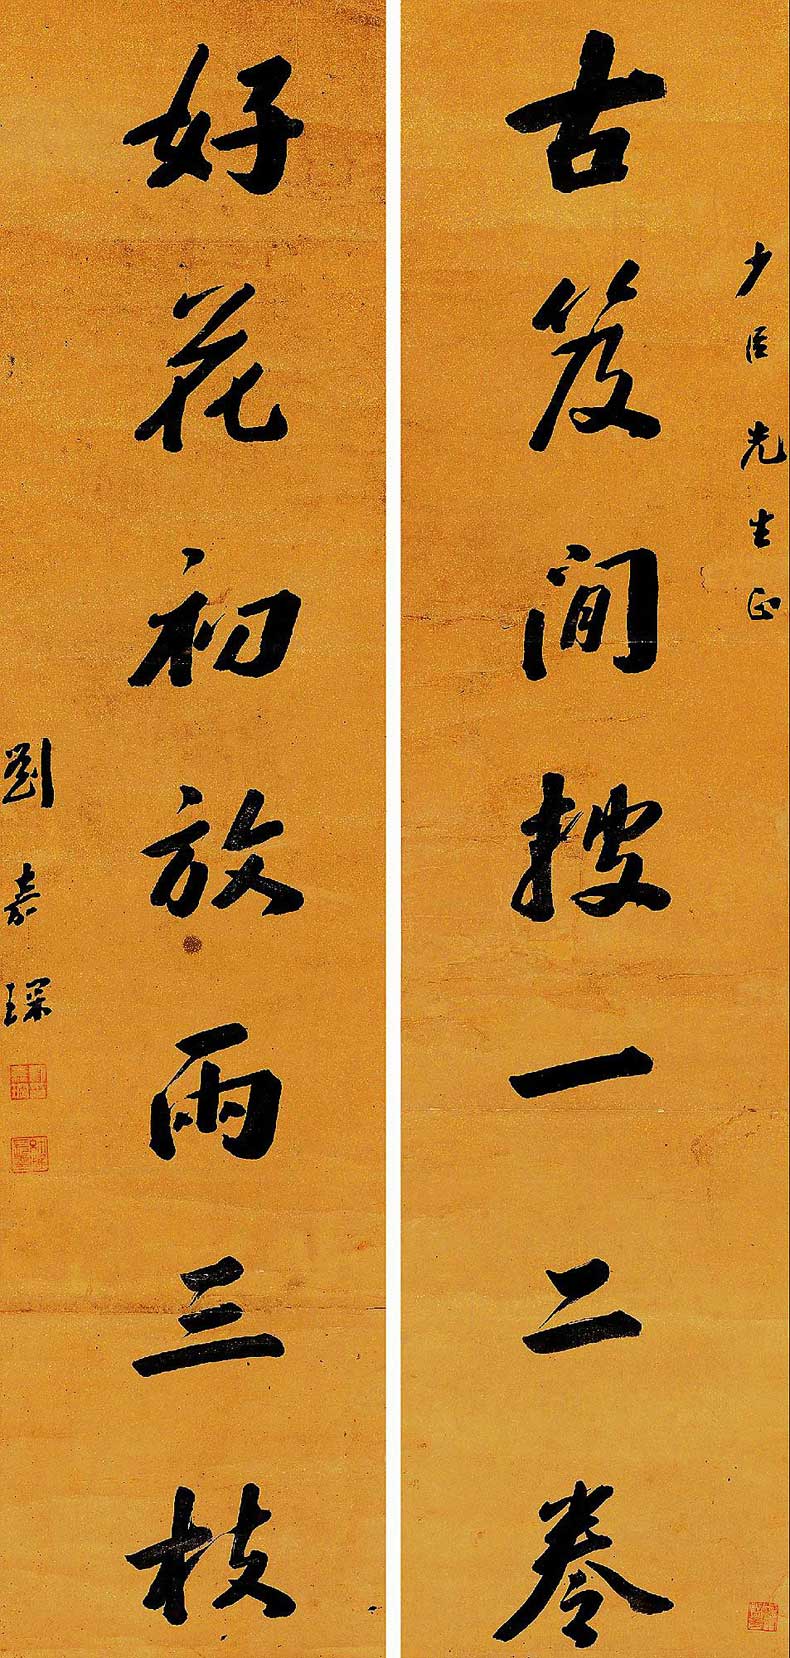 少臣先生正
古笈閒搜一二卷
好花初放兩三枝
劉嘉琛